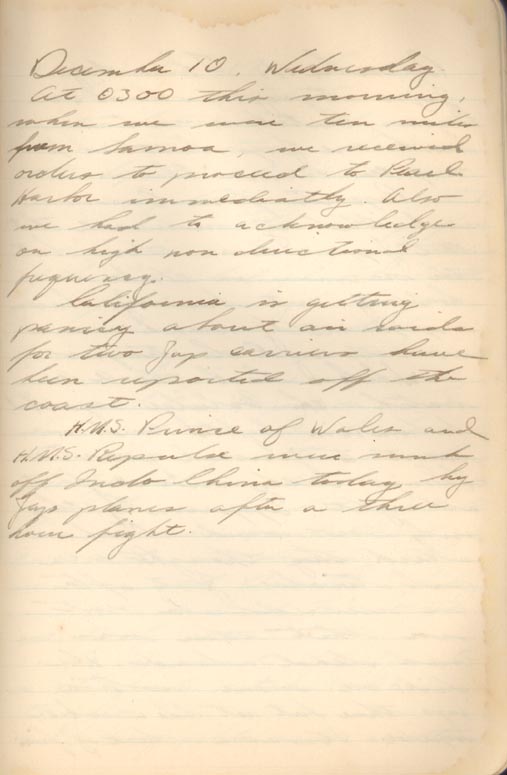 December 10, Wednesday.
At 0300 this morning,
when we were ten miles
from Samoa, we received
orders to proceed to Pearl
Harbor immediatly. Also
we had to acknowledge
on high non directional
frequency.
California is getting
panicy about air raids
for two Jap carriers have
been reported off the
coast.
H.M.S. Prince of Wales and
H.M.S. Repulse were sunk
off Indo China today by
Jap planes after a three
hour fight.